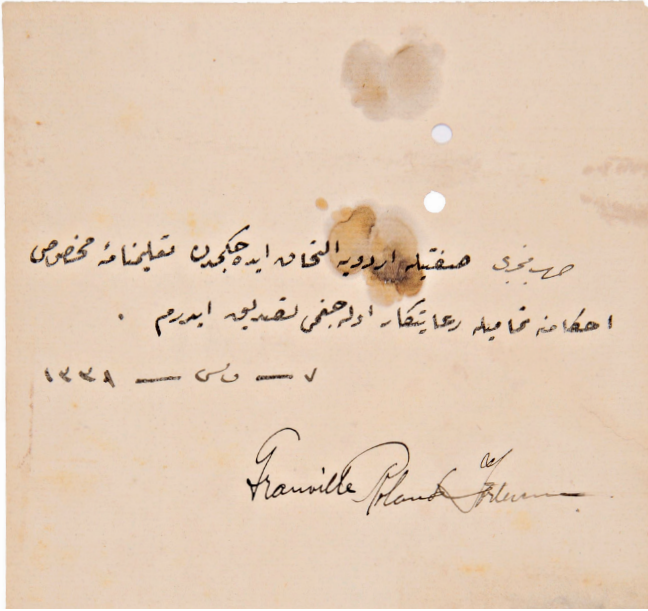 حرب مخبرى صفتيله اردويه التحاق ايده جكمدن تعليمنامۀ مخصوصى
احكامنه تماميله رعايتكار اوله جغمى تصديق ايدرم .
٧ — مارس — ١٣٣٨
Granville Roland Fortescue